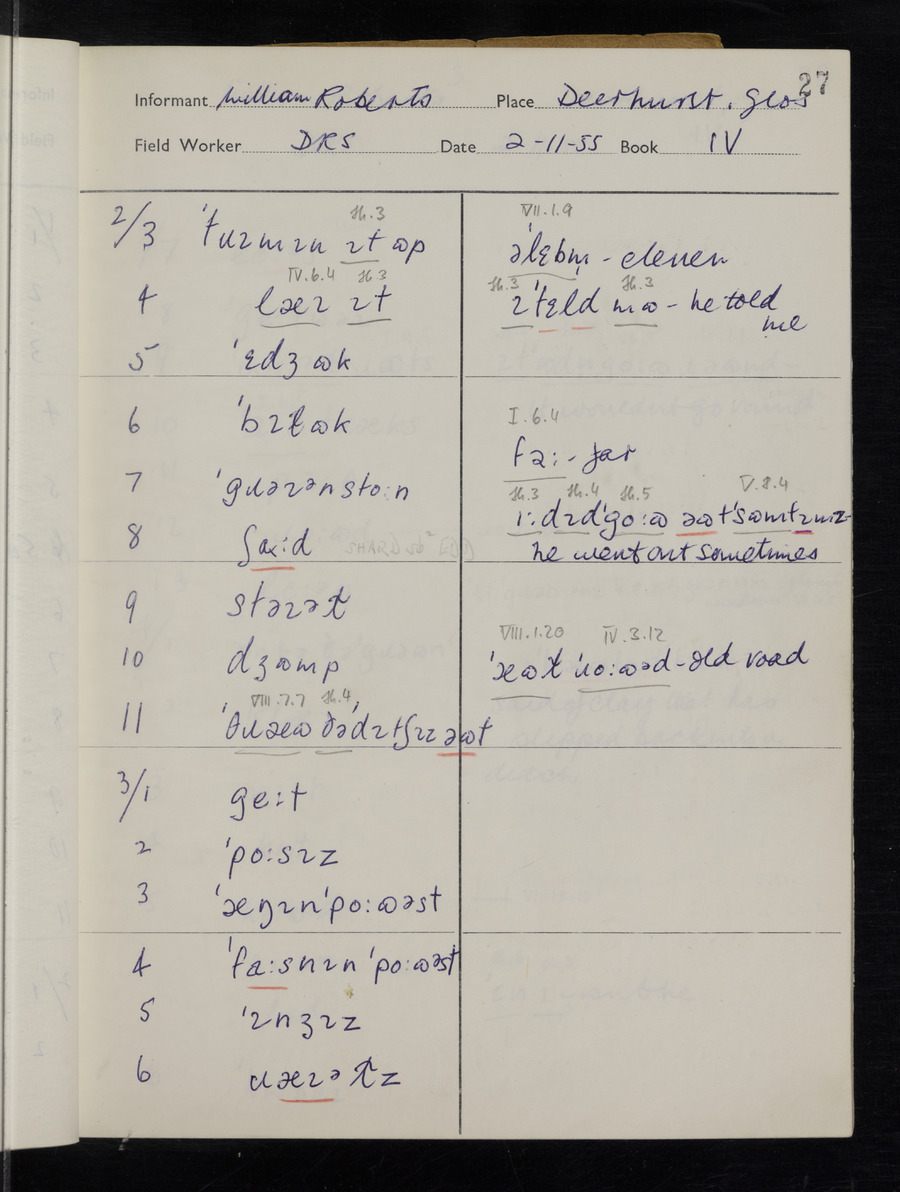 27
Informant William Roberts Place Deerhurst. Glos
Field Worker DRS Date 2-11-55 Book IV
2/3 ˈtɹɪmɪn ɪt ɷp
4 læɪ ɪt
IV.6.4
5 ˈɛdʒ ɷk
6 ˈbɪɫ ɷk
7 ˈgɹəɪənstoːn
8 ʃaɹːd
9 stəɪəɫ
10 dʒɷmp
VIII.7.7
11 ˈθɹəɷ ðəˈdɪtʃɪz əɷt
3/1 geːt
2 ˈpoːsɪz
3 ˈæŋɪnˈpoːɷəst
4 ˈfaːsnɪn ˈpoːɷəst
5 ˈɪnʒɪz
6 ɹəɪəɫz
VII.1.9
əˈlɛbm̩ - eleven
ɪˈtɛld mɷ - he told
me
I.6.4
faː - far
V.8.4
iːdɪdˈgoːɷ əɷtˈsɷmtɪmz-
he went out sometimes
VIII.1.20 IV.3.12
ˈəɷɫ ˈɹoːɷəd - old road